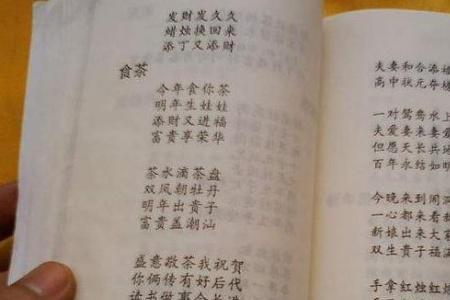 发财发久久
蜡烛换回来
添丁又添财
食茶
今年食你茶
明年生娃娃
添财又进福
富贵享荣华
茶水滴茶盘
双凤朝牡丹
明年出贵子
富贵盖潮汕
盛意敬茶我祝贺
你俩传有好后代
读书做事
夫妻和合添
高中状元夺
一对鸳鸯水上
夫爱妻来妻
但愿天长兵
百年永结如
今晚来到闹洞
一心都来看
新娘出来大
双生贵子福满
手拿红烛红